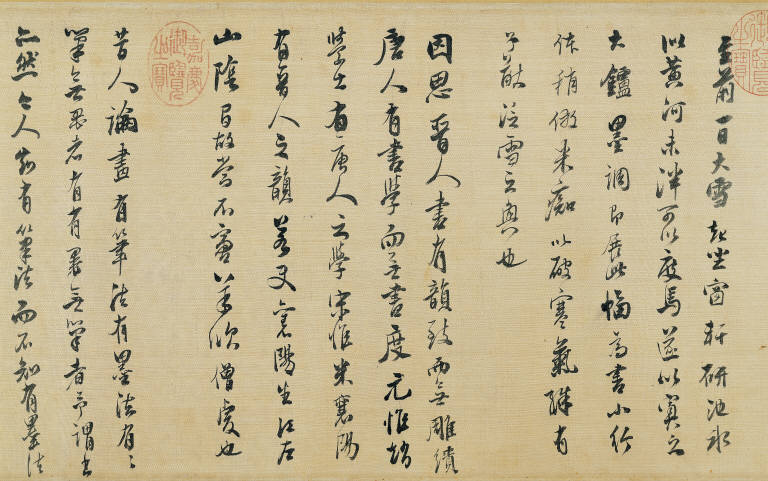 至前一日大雪起坐窗軒研池冰
似黃河未泮可以度馬遂以寘之
大鑪墨調即展此幅為書小行
体稍倣米癡以破寒氣殊有
子猷泛雪之興也
因思晉人書有韻致而無雕繢
唐人有書學而無書度元惟趙
學士有唐人之學宋惟米襄陽
有晉人之韻若又襄陽生江左
山陰間故當不審羊欣僧虔也
昔人論畫有筆法有墨法有々
筆無墨者有有墨無筆者予謂書
亦然今人知有筆法而不知有墨法
嘉慶御覽之寶